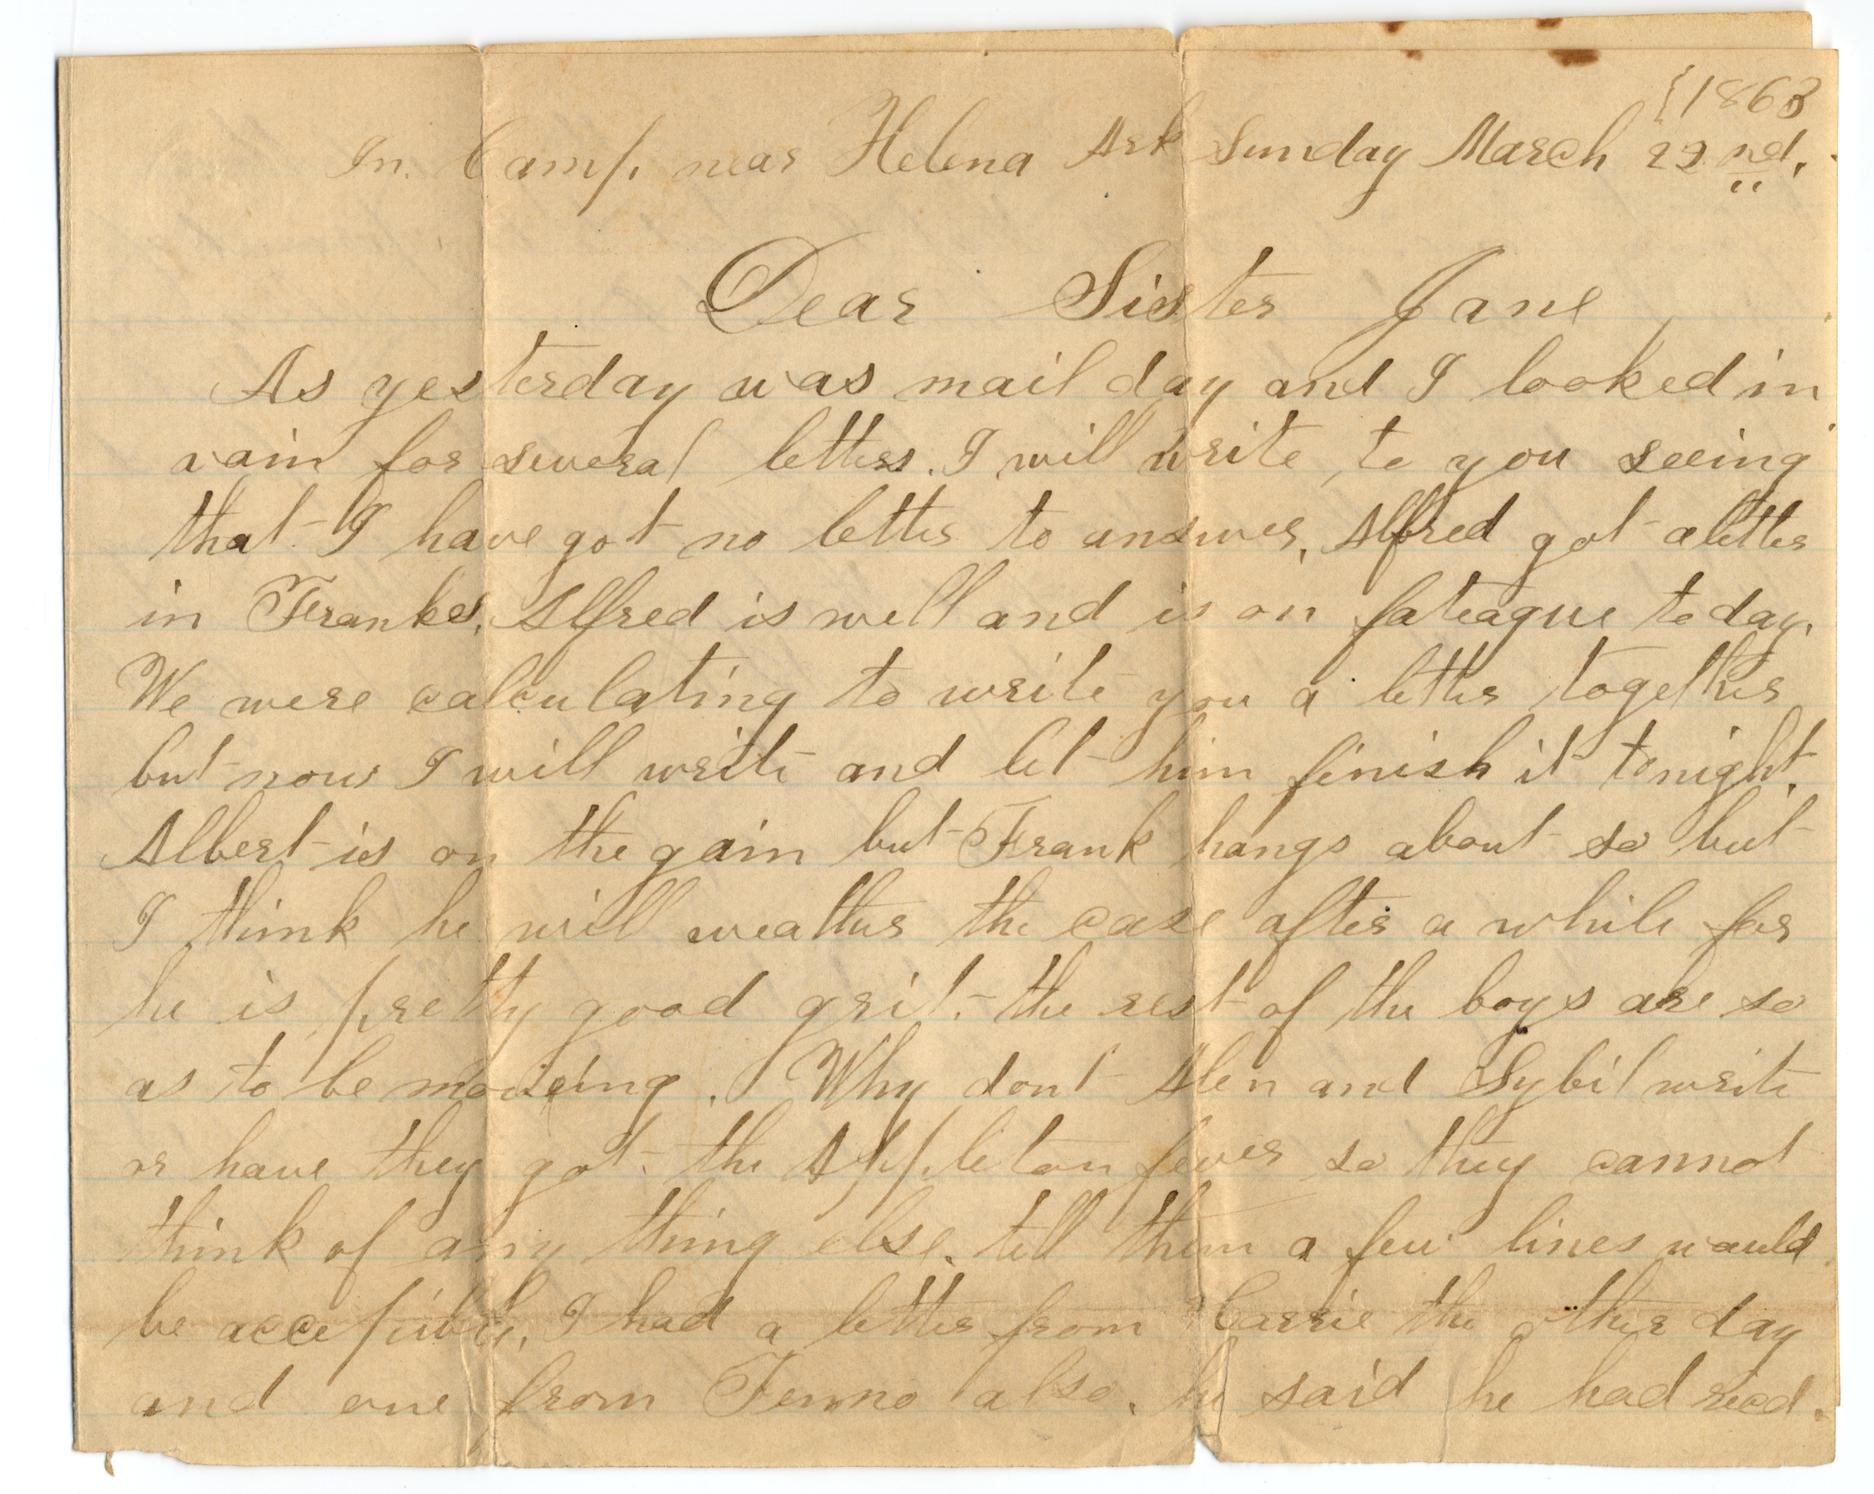 {1863
In Camp, near Helena Ark Sunday March 22nd,
Dear Sister Jane
As yesterday was mail day and I looked in
vain for several letters. I will write to you seeing
that I have got no letter to answer, Alfred got a letter
in Frankes, Alfred is well and is on fateague today,
We were calculating to write you a letter together
but now I will write and let him finish it tonight,
Albert is on the gain but Frank hangs about so but
I think he will weather the case after a while for
he is pretty good grit. the rest of the boys are so
as to be moveing. Why dont Alen and Sybil write
or have they got the Appleton fever so they cannot
think of any thing else. tell them a few lines would
be I had a letter from Carrie the other day
and one from Fenno also, he said he had recd.